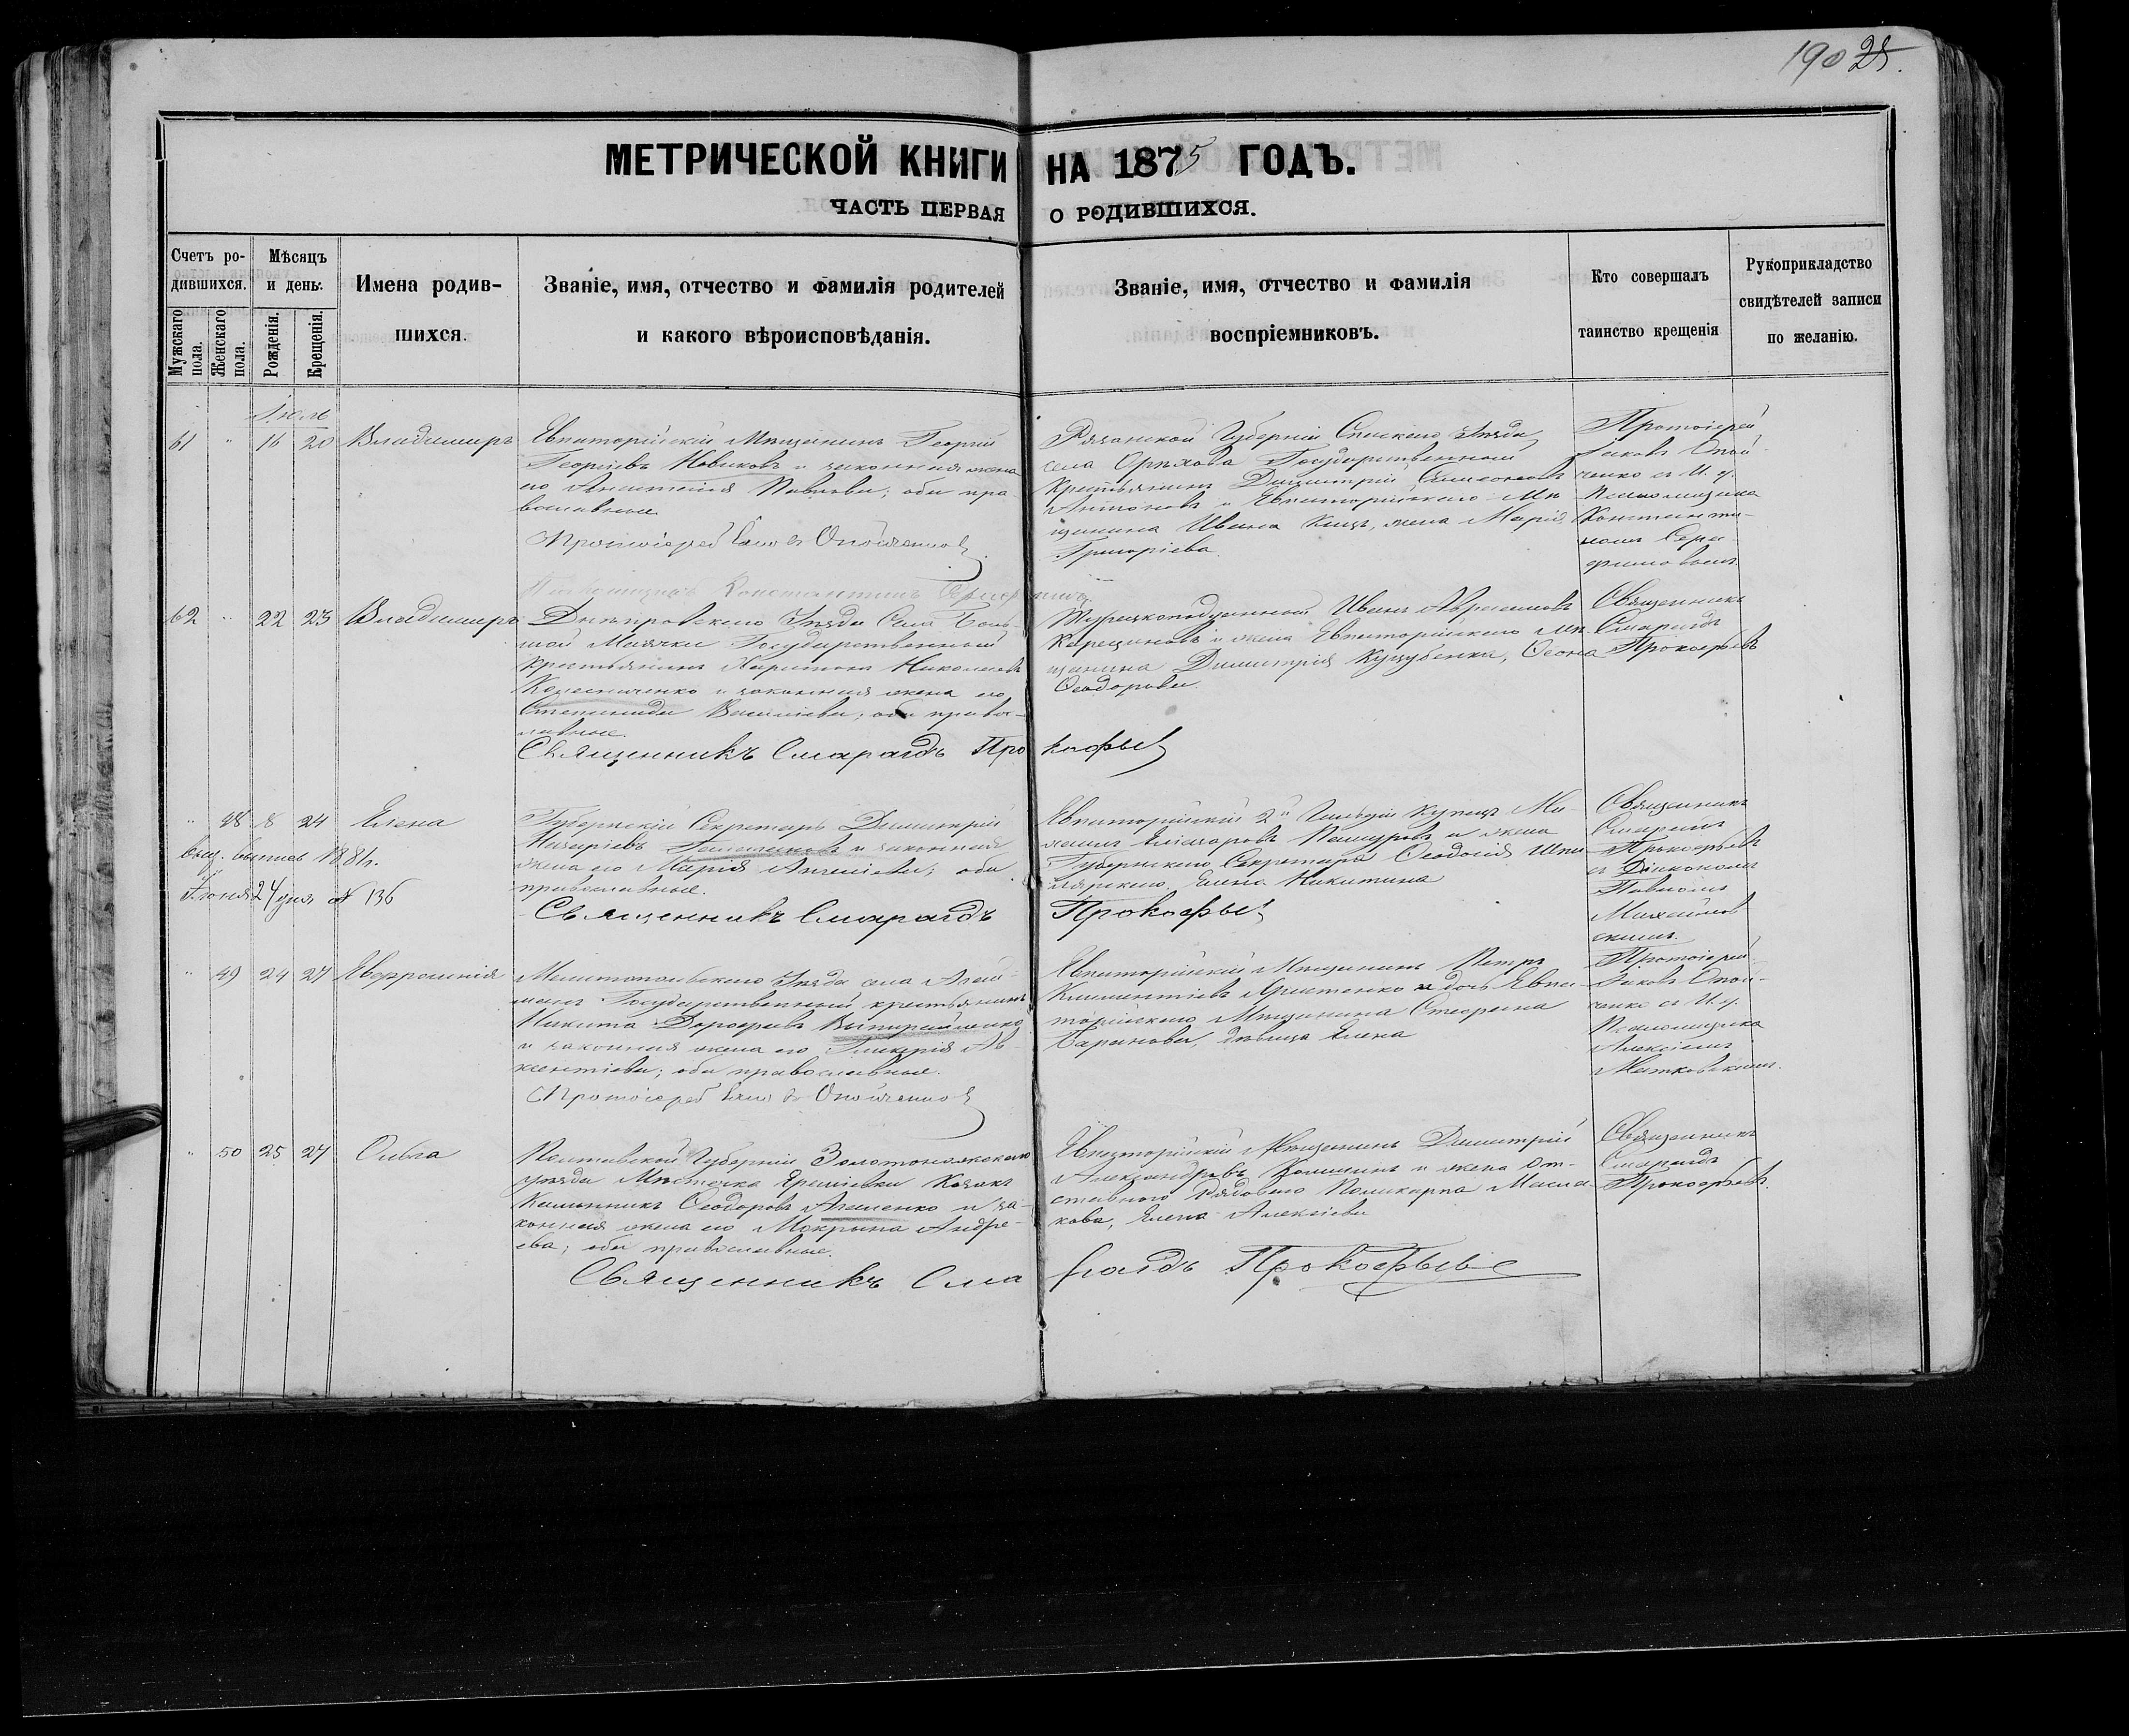 190 25.
МЕТРИЧЕСКОЙ КНИГИ НА 1875 ГОДЪ.
ЧАСТЬ ПЕРВАЯ О РОДИВШИХСЯ.
Счетъ ро-
дившихся.
Мужскаго пола.
Женскаго пола.
Мѣсяцъ
и день.
Рожденія.
Крещенія.
Имена родив-
шихся.
Званіе, имя, отчество и фамилія родителей
и какого вѣроисповѣданія.
Званіе, имя, отчество и фамилія
воспріемниковъ.
Кто совершалъ
таинство крещенія
Рукоприкладство
свидѣтелей записи
по желанію.
Іюль
61 " 16 20 Владимиръ
Евпаторійскій Мѣщанинъ Георгій
Георгіевъ Новиковъ и законная жена
его Анастасія Павлова; оба пра-
вославные.
Протоіерей Іаковъ
Рязанской Губерніи Спаскаго Уѣзда
села Орѣхова Государственный
Крестьянинъ Димитрій Симеоновъ
Антоновъ и Евпаторійскаго Мѣ-
щанина Ивана жена Марія
Григоріева.
Протоіерей
Іаковъ Опой-
ченко съ И. д.
Псаломщика
Константи-
номъ Сера-
фимовымъ
Псаломщикъ Константинъ
62 " 22 23 Владимиръ
Днѣпровскаго Уѣзда Села Боль-
шой Маячки Государственный
Крестьянинъ Харитонъ Николаевъ
Колесниченко и законная жена его
Степанида Василіева; оба правос-
лавные.
Священникъ Смарагдъ Прокофьев
Турецкоподданный Иванъ
и жена Евпаторійскаго Мѣ-
щанина Димитрія Куцубенка,
Ѳеодорова.
Священникъ
Смарагдъ
Прокофьевъ
" 48 8 24 Елена
выд. выпись 1881г.
Іюня 24 дня № 136
Губернскій Секретарь Димитрій
и законная
жена его Марія; оба
православные.
Священникъ Смарагдъ Прокофьев
Евпаторійскій 2й Гильдіи Купецъ
и жена
Губернскаго Секретаря Ѳеодосія
Елена Никитина
Священникъ
Смарагдъ
Прокофьевъ
съ Діакономъ
Павломъ
Михайлов-
скимъ.
" 49 24 27 Евфросинія
Мелитопольскаго Уѣзда села
Государственный крестьянинъ
Никита Дорофеевъ
и законная жена его Гликерія Ав-
ксентіева; оба православные.
Протоіерей Іаковъ
Евпаторійскій Мѣщанинъ Петръ
Климентіевъ и дочь Евпа-
торійскаго Мѣщанина Стефана
Баранова, дѣвица Елена
Протоіерей
Іаковъ Опой-
ченко съ И. д.
Псаломщика
Алексіемъ
Жатковскимъ.
" 50 25 27 Ольга
Полтавской Губерніи Золотоношскаго
уѣзда Мѣстечка Еремѣевки Козакъ
Каллиникъ Ѳеодоровъ и за-
конная жена его Мокрына Андре-
ева; оба православные.
Священникъ Смарагдъ Прокофьевъ
Евпаторійскій Мѣщанинъ Димитрій
Александровъ и жена От-
ставнаго Рядоваго Поликарпа Масла-
кова, Елена Алексіева
Священникъ
Смарагдъ
Прокофьевъ.